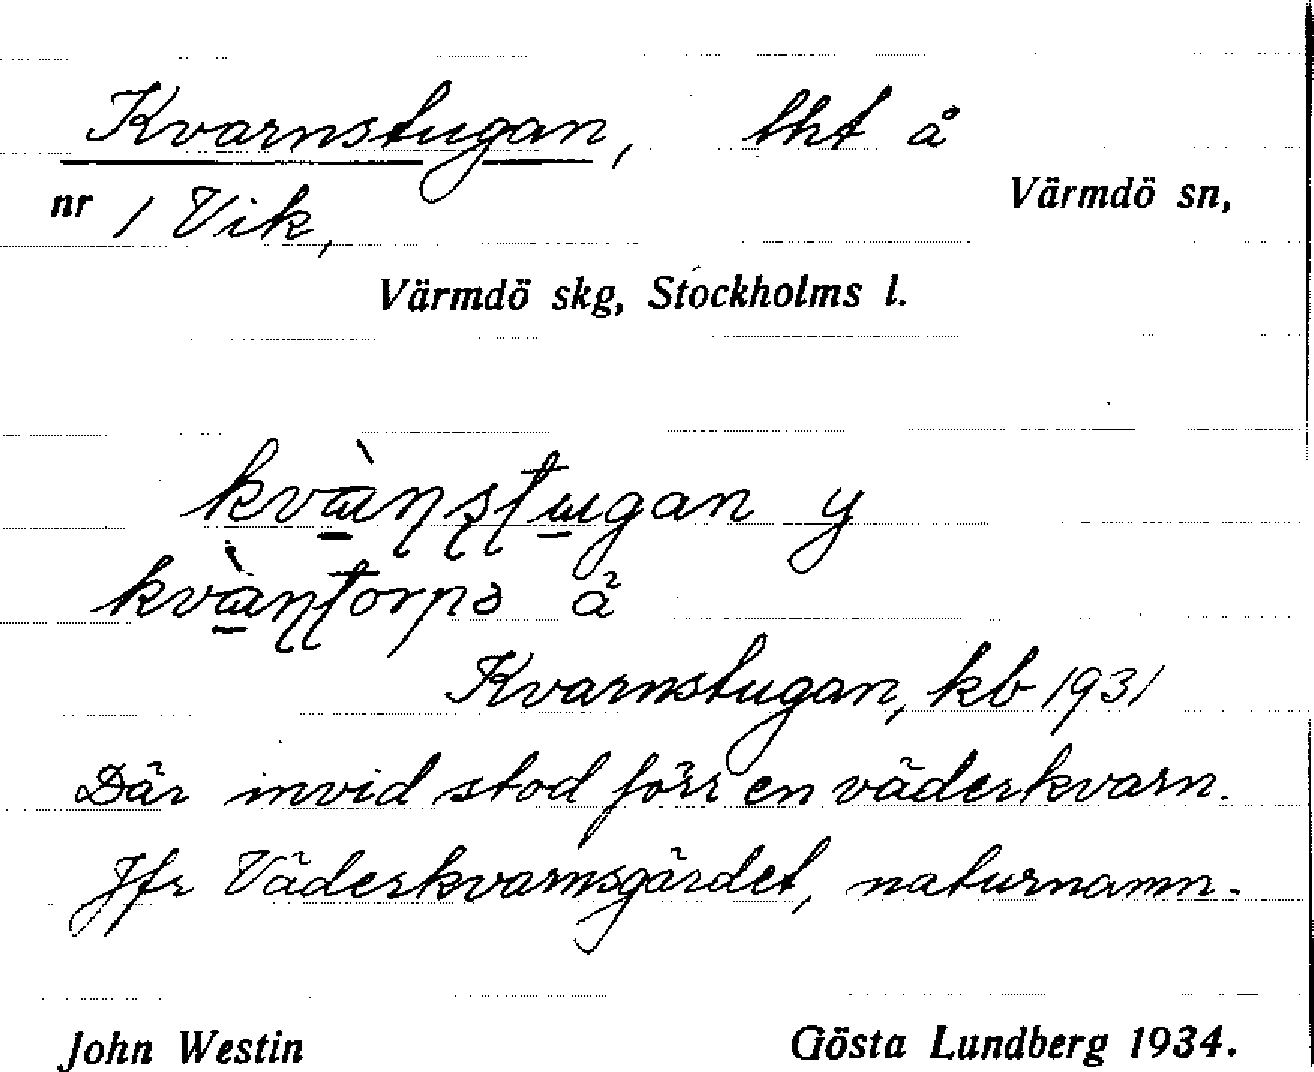 Kvarnstugan, lht å
nr 1 Vik, Värmdö sn,
Värmdö skg, Stockholms l.
y
ä
Kvarnstugan, kb 1931
Där invid stod förr en väderkvarn.
Jfr Väderkvarnsgärdet, naturnamn.
John Westin Gösta Lundberg 1934.